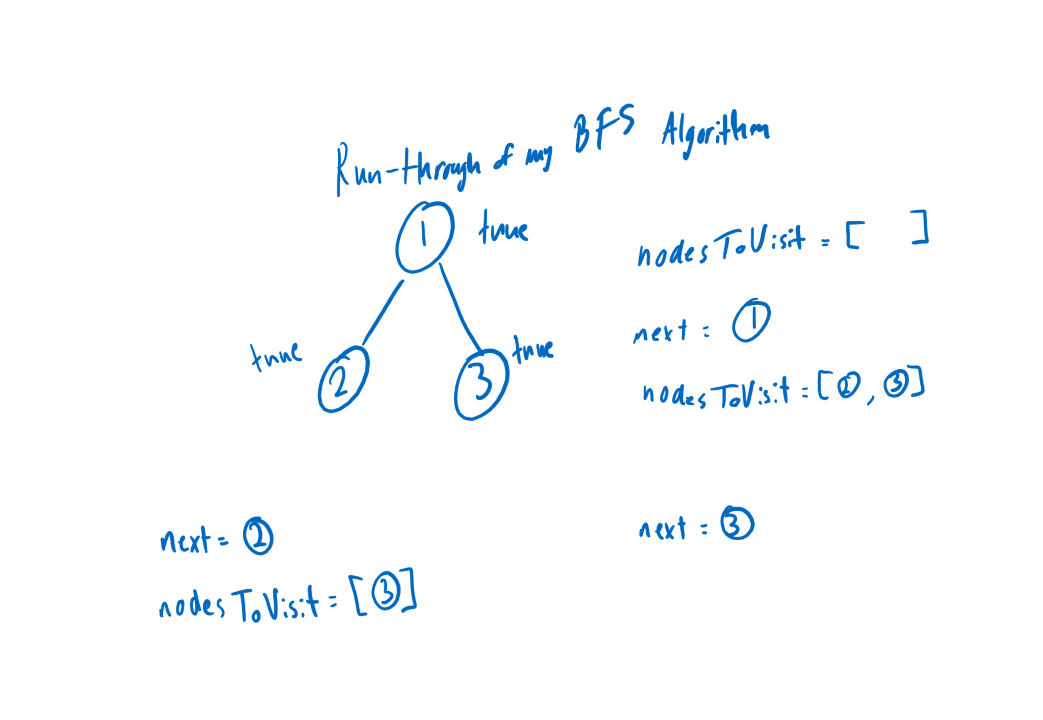 Run-through of my BFS Algorithm
1 true
true 2
3 true
nodesToVisit = [ ]
next = 1
nodesToVisit = [2, 3]
next = 2
nodesToVisit = [3]
next = 3